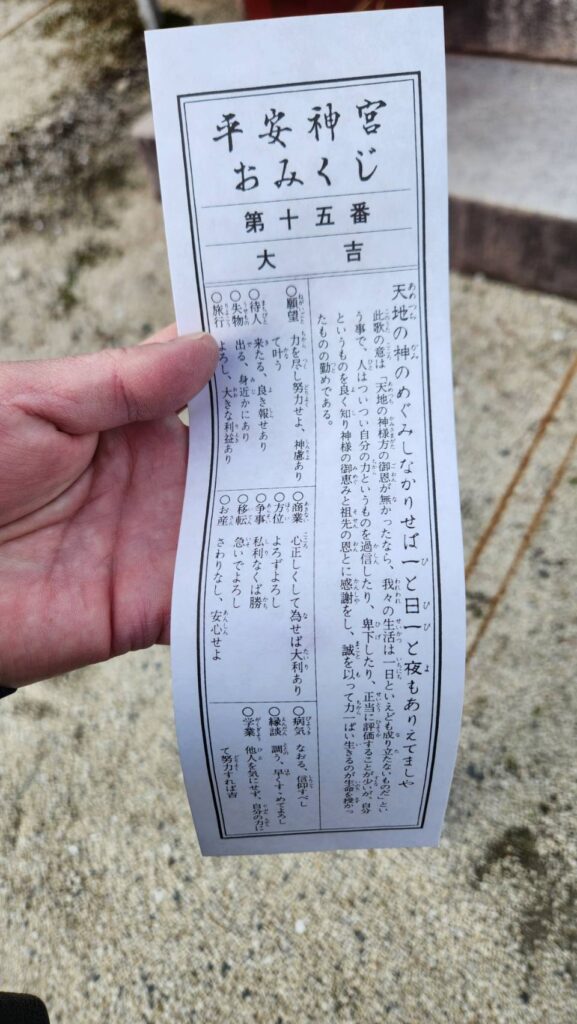 平安神宮
おみくじ
第十五番
大吉
天地の神のめぐみしなかりせば一と日一と夜もありえてましや
此歌の意は「天地の神様方の御恩が無かったなら、我々の生活は一日といえども成り立たないものだ」とい
う事で、人はついつい自分の力というものを過信したり、卑下したり、正当に評価することが少いが、自分
というものを良く知り神様の御恵みと祖先の恩とに感謝をし、誠を以って力一ぱい生きるのが生命を授かっ
たものの勤めである。
○願望 力を尽し努力せよ、神慮あり
て叶う
○待人 来たる、良き報せあり
○失物 出る、身近かにあり
○旅行 よろし、大きな利益あり
○商業 心正しくして為せば大利あり
○方位 よろずよろし
○争事 私利なくば勝
○移転 急いでよろし
○お産 さわりなし、安心せよ
○病気 なおる、信仰すべし
○縁談 調う、早くすゝめてよろし
○学業 他人を気にせず、自分の力に
て努力すれば吉